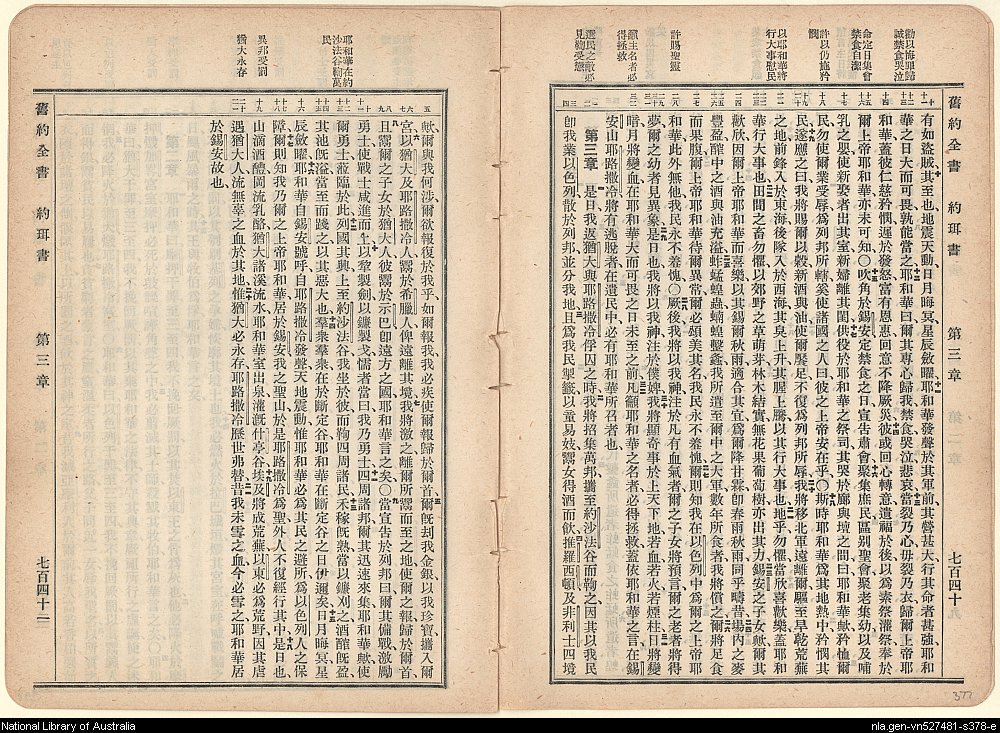 勸以悔罪歸
誠禁食哭泣
命定日集會
禁食自潔
許以仍施矜
憫
以耶和華將
行大事慰民
許賜聖靈
籲主名者必
得拯救
選民之敵必
舊約全書 約珥書 第三章 七百四十
有如盜賊其至也地震天動日月晦冥星辰斂曜耶和華發聲於其軍前其營甚大行其命者甚強耶和
華之日大而可畏孰能當之耶和華曰爾其專心歸我禁食哭泣悲哀當裂乃心毋裂乃衣歸爾上帝耶
和華蓋彼仁慈矜憫遲於發怒富有恩惠回意不降厥災彼或回心轉意遺福於後以為素祭灌祭奉於
爾上帝耶和華亦未可知〇吹角於錫安定禁食之日宣告肅會聚集庶民區別聖會聚老集幼以及哺
乳之嬰使新娶者出其室新婦離其闈供役於耶和華之祭司其哭於廊與壇之間曰耶和華歟矜恤爾
民勿使爾業受辱為列邦所轄奚使諸國之人曰彼之上帝安在乎〇斯時耶和華為其地熱中矜憫其
民遂應之曰我將賜爾以穀新酒與油使爾饜足不復為列邦所辱我將移北軍遠離爾驅至旱乾荒蕪
之地前鋒入於東海後隊入於西海其臭上升其腥上騰以其行大事也地乎勿懼當欣喜歡樂蓋耶和
華行大事也田間之畜勿懼以郊野之草萌芽林木結實無花果葡萄樹亦出其力錫安之子女歟爾其
歡欣因爾上帝耶和華而喜樂以其錫爾秋雨適合其宜為爾降甘霖即春雨秋雨同乎疇昔場內之麥
豐盈醡中之酒與油充溢蚱蜢蝗蟲蝻蝗螿螽我所遣至爾中之大軍數年所食者我將償之爾將足食
而果腹爾上帝耶和華待爾異常爾必頌美其名我民永不羞愧爾則知我在以色列中為爾之上帝耶
和華此外無他我民永不羞愧〇厥後我將以我神注於凡有血氣者爾之子女將預言爾之老者將得
夢爾之幼者見異象是日也我將以我神注於僕婢我將顯奇事於上天下地若血若火若煙柱日將變
暗月將變血在耶和華大而可畏之日未至之前凡籲耶和華之名者必得拯救蓋依耶和華之言在錫
安山耶路撒冷將有逃脫者在遺民中必有耶和華所召者也
第三章 是日我返猶大與耶路撒冷俘囚之時我將招集萬邦攜至約沙法谷而鞫之因其以我民
即我業以色列散於列邦並分我地且為我民掣籤以童易妓鬻女得酒而飲推羅西頓及非利士四境
耶和華在約
沙法谷鞫萬
民
異邦受罰
猶大永存
歟爾與我何涉爾欲報復於我乎如爾報我我必疾使爾報歸於爾首爾既刦我金銀以我珍寶攜入爾
宮以猶大及耶路撒冷人鬻於希臘人俾遠離其境我將激之離爾所鬻而至之地使爾之報歸於爾首
且鬻爾之子女於猶大人彼鬻於示巴即遠方之國耶和華言之矣〇當宣告於列邦曰爾其備戰激勵
勇士使戰士咸進而上以犂製劍以鐮製戈懦者當曰我乃勇士四周諸邦爾其迅速來集耶和華歟使
爾勇士蒞臨於此列國其興上至約沙法谷我坐於彼而鞫四周諸民禾稼既熟當以鐮刈之酒醡既盈
其池既溢當至而踐之以其惡大也羣衆羣衆在於斷定谷耶和華在斷定谷之日伊邇矣日月晦冥星
辰斂曜耶和華自錫安號呼自耶路撒冷發聲天地震動惟耶和華必為其民之避所為以色列人之保
障爾則知我乃爾之上帝耶和華居於錫安我之聖山於是耶路撒冷為聖外人不復經行其中是日也
山滴酒醴岡流乳酪猶大諸溪流水耶和華室出泉灌溉什亭谷埃及將成荒蕪以東必為荒野因其虐
遇猶大人流無辜之血於其地惟猶大必永存耶路撒冷歷世弗替昔我未雪之血今必雪之耶和華居
於錫安故也
舊約全書 約珥書 第三章 七百四十一
377
National Library of Australia
nla.gen-vn527481-s378-e